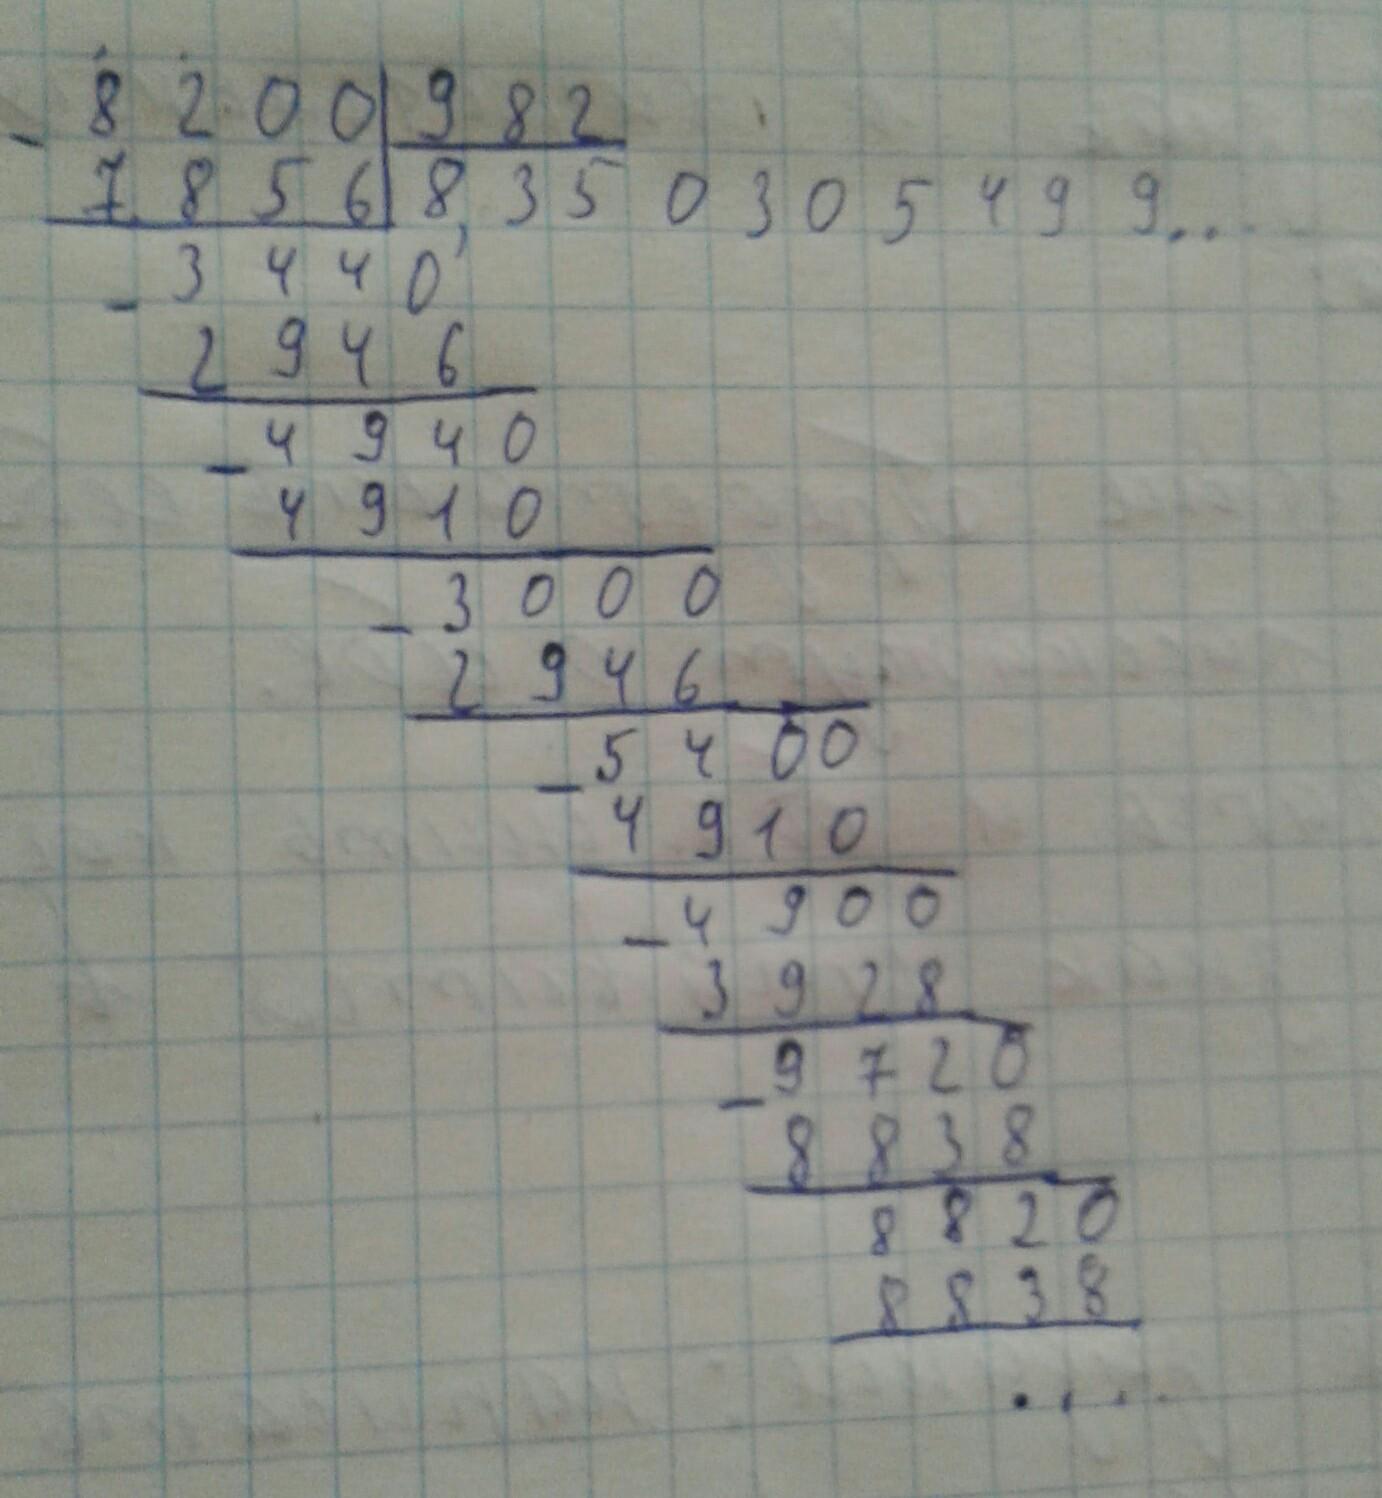 8200 982
7856 8,350305499..
3440
2946
4940
4910
3000
2946
5400
4910
4900
3928
9720
8838
8820
8838
....